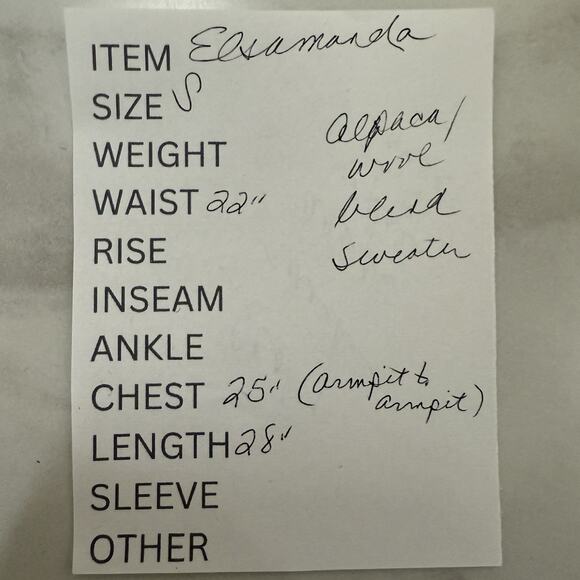 ITEM Elsamanda
SIZE S
WEIGHT
alpaca/
wool
WAIST 22"
blend
RISE
sweater
INSEAM
ANKLE
CHEST 25" (armpit to
armpit)
LENGTH 28"
SLEEVE
OTHER